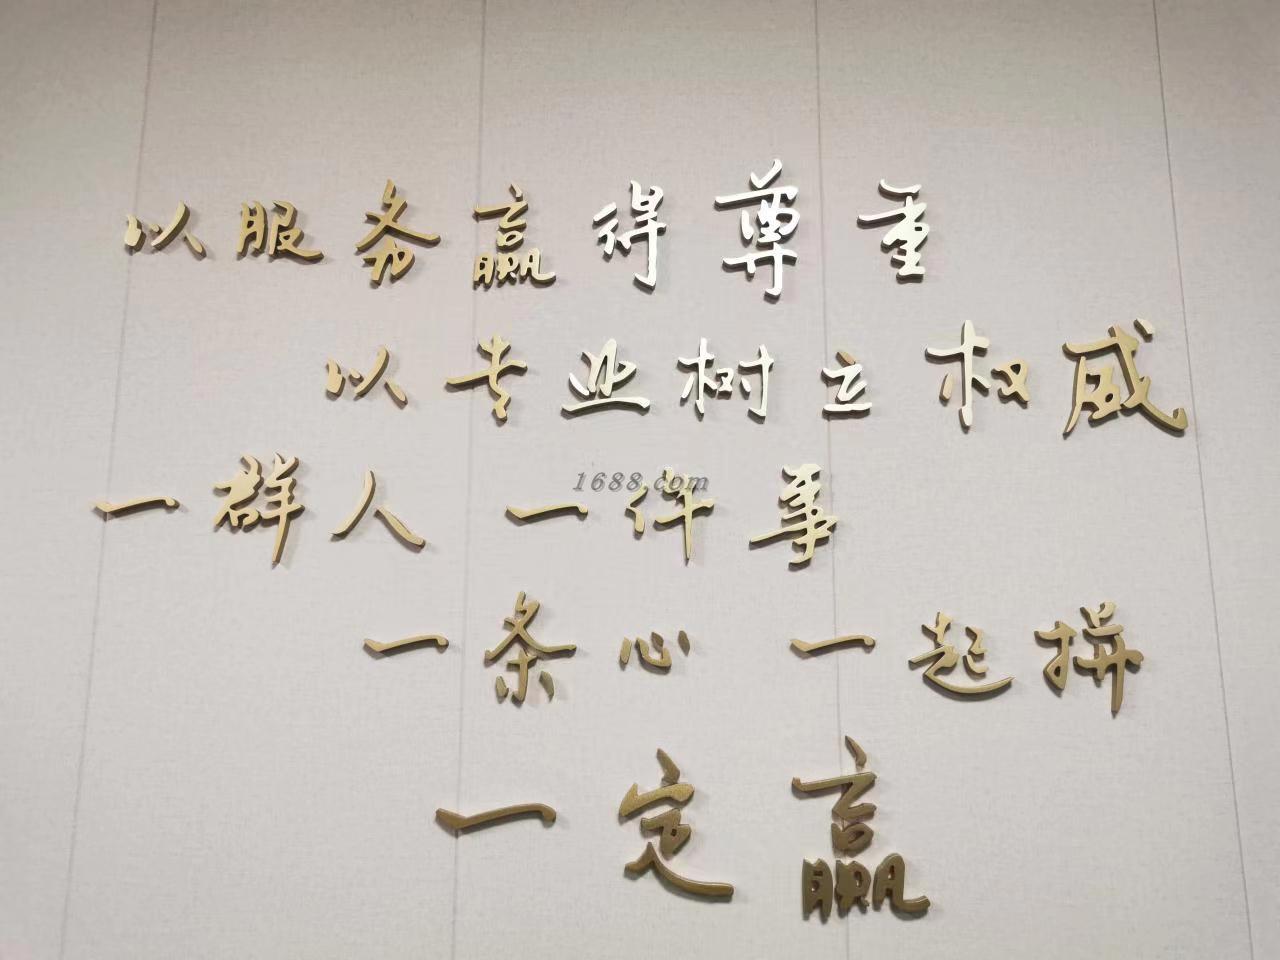 以服务赢得尊重
以专业树立权威
一群人 一件事
1688.com
一条心 一起拼
一定赢